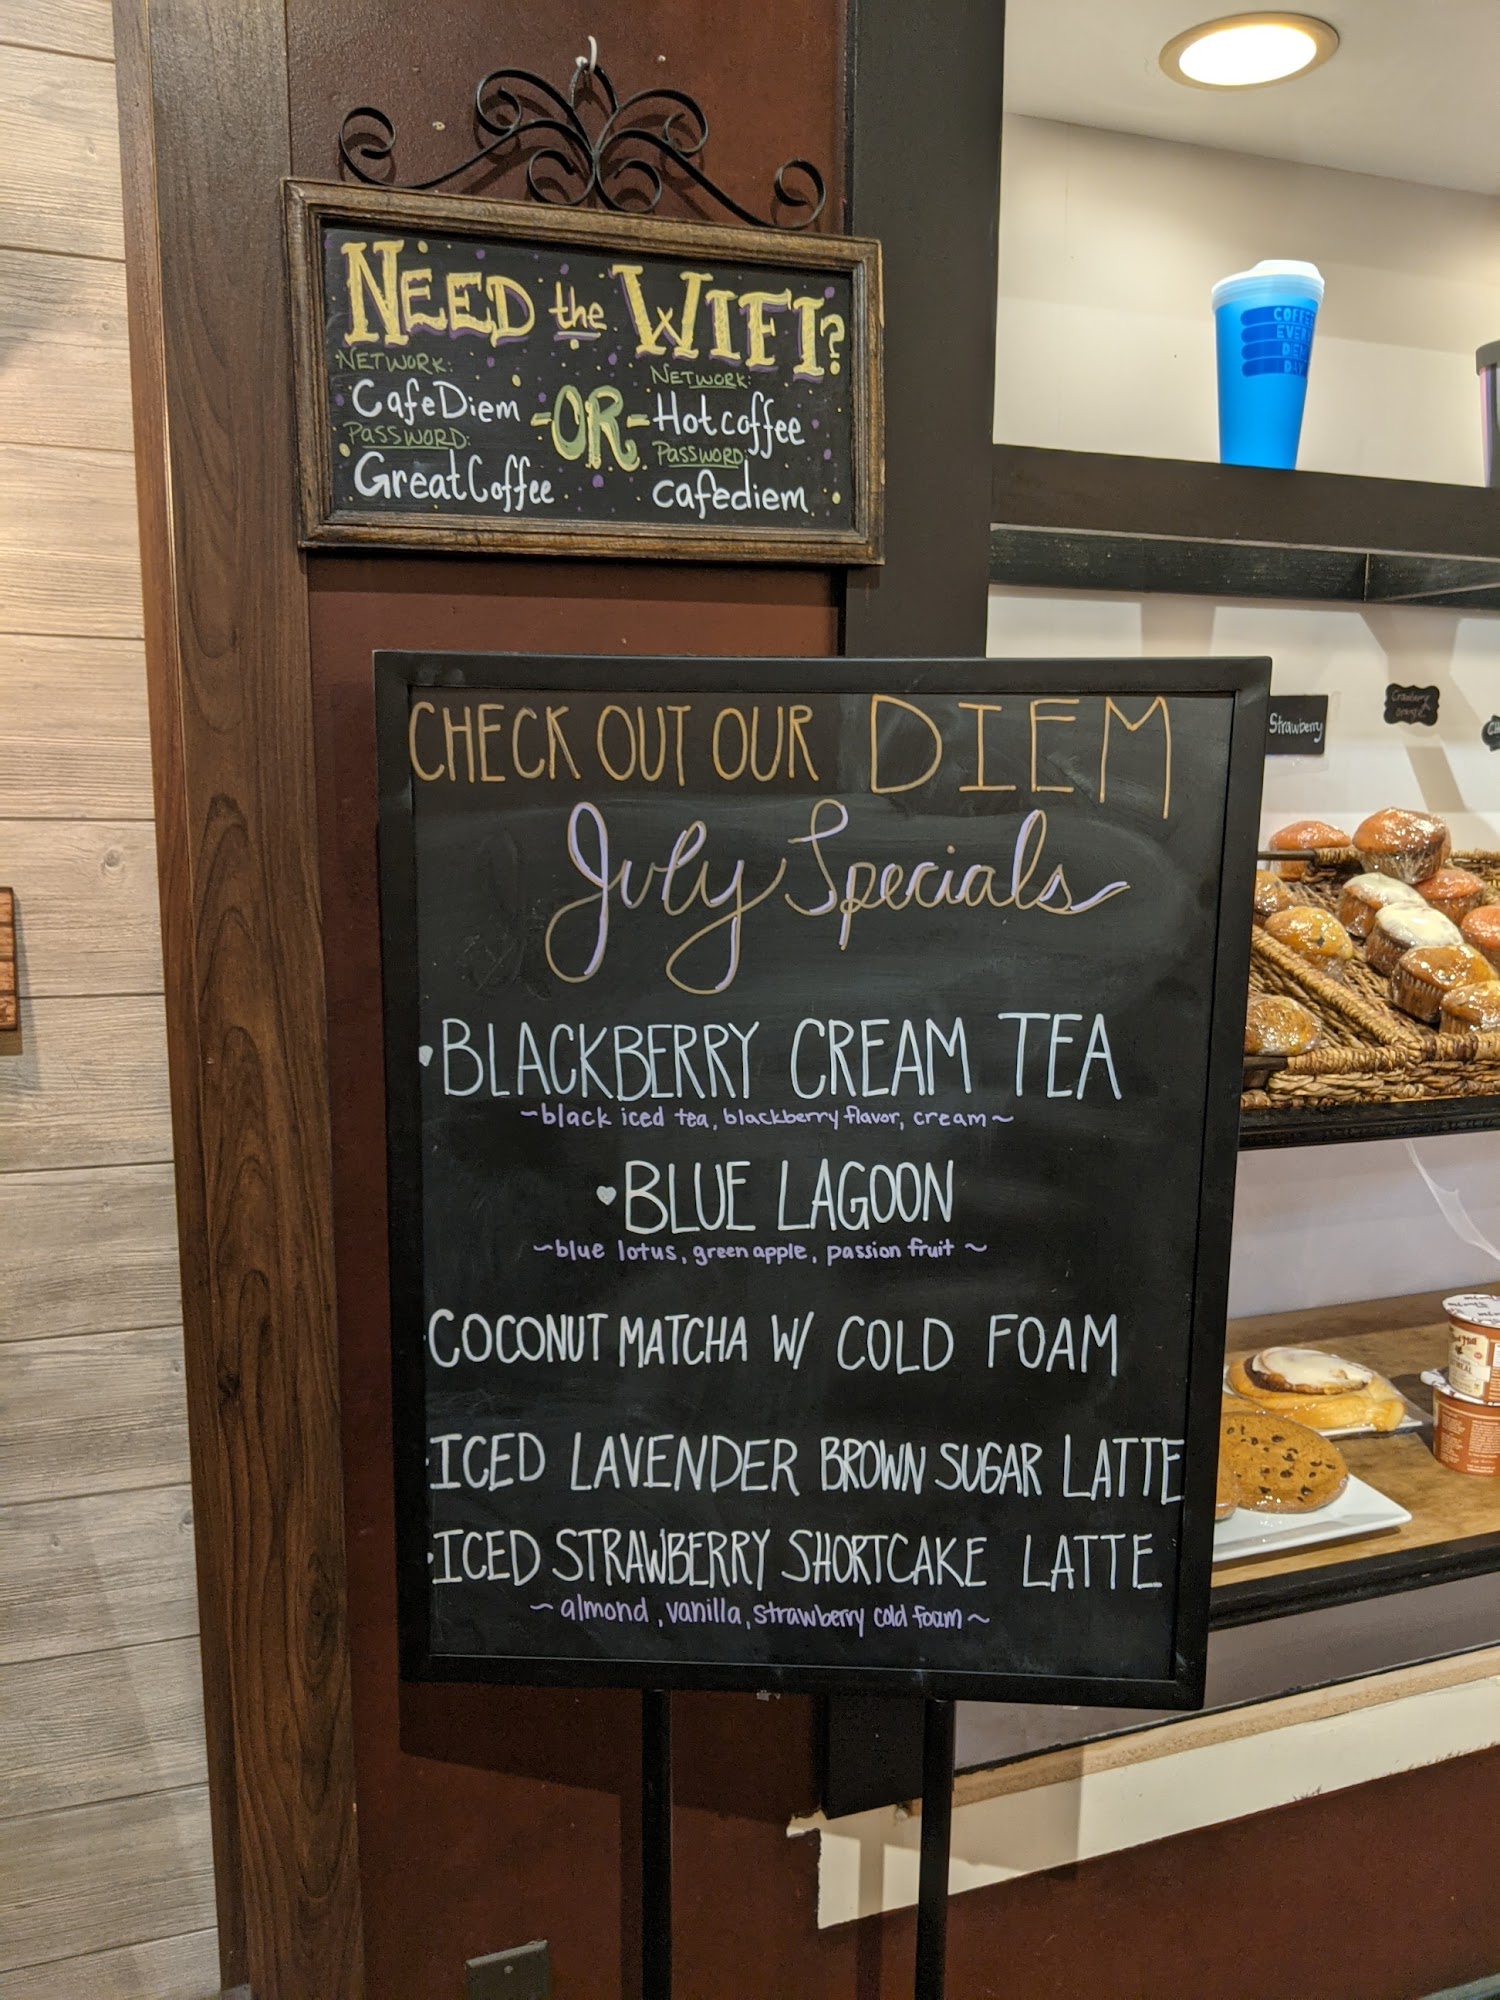 NEED the WIFI?
NETWORK:
CafeDiem
PASSWORD:
GreatCoffee
-OR-
NETWORK:
Hotcoffee
PASSWORD:
cafediem
COFFEE
EVERY
DAY
Strawberry
Cranberry
orange
CHECK OUT OUR DIEM
July Specials
BLACKBERRY CREAM TEA
~black iced tea, blackberry flavor, cream~
BLUE LAGOON
~blue lotus, green apple, passion fruit~
COCONUT MATCHA W/ COLD FOAM
ICED LAVENDER BROWN SUGAR LATTE
ICED STRAWBERRY SHORTCAKE LATTE
~almond, vanilla, strawberry cold foam~